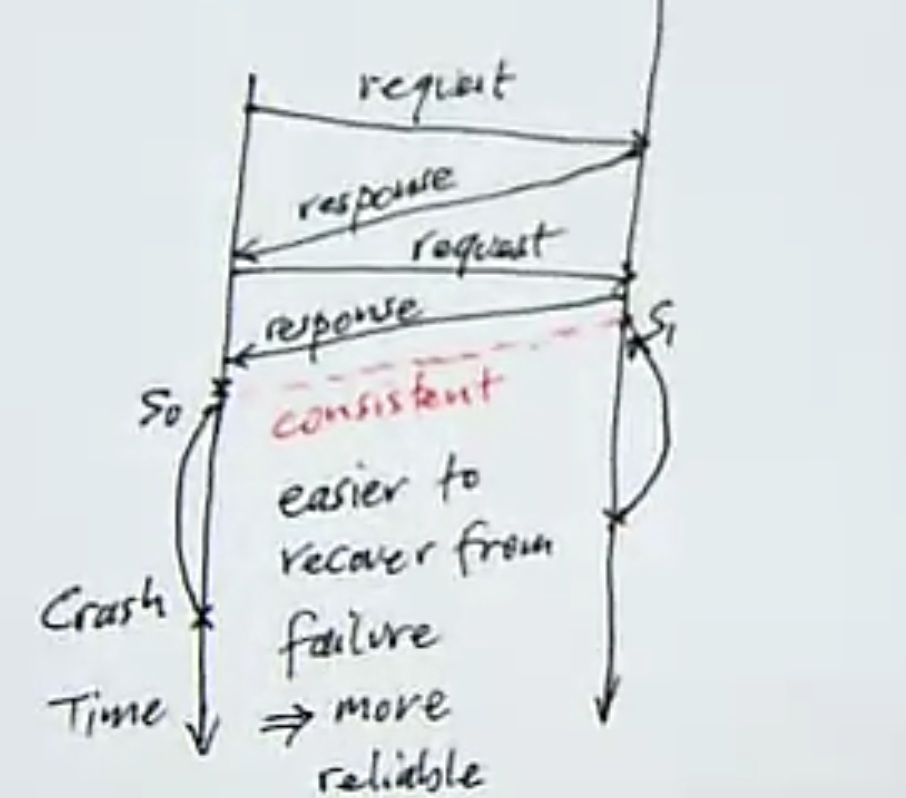 request
response
request
response
S1
S0
consistent
easier to
recover from
Crash
failure
Time
⇒ more
reliable